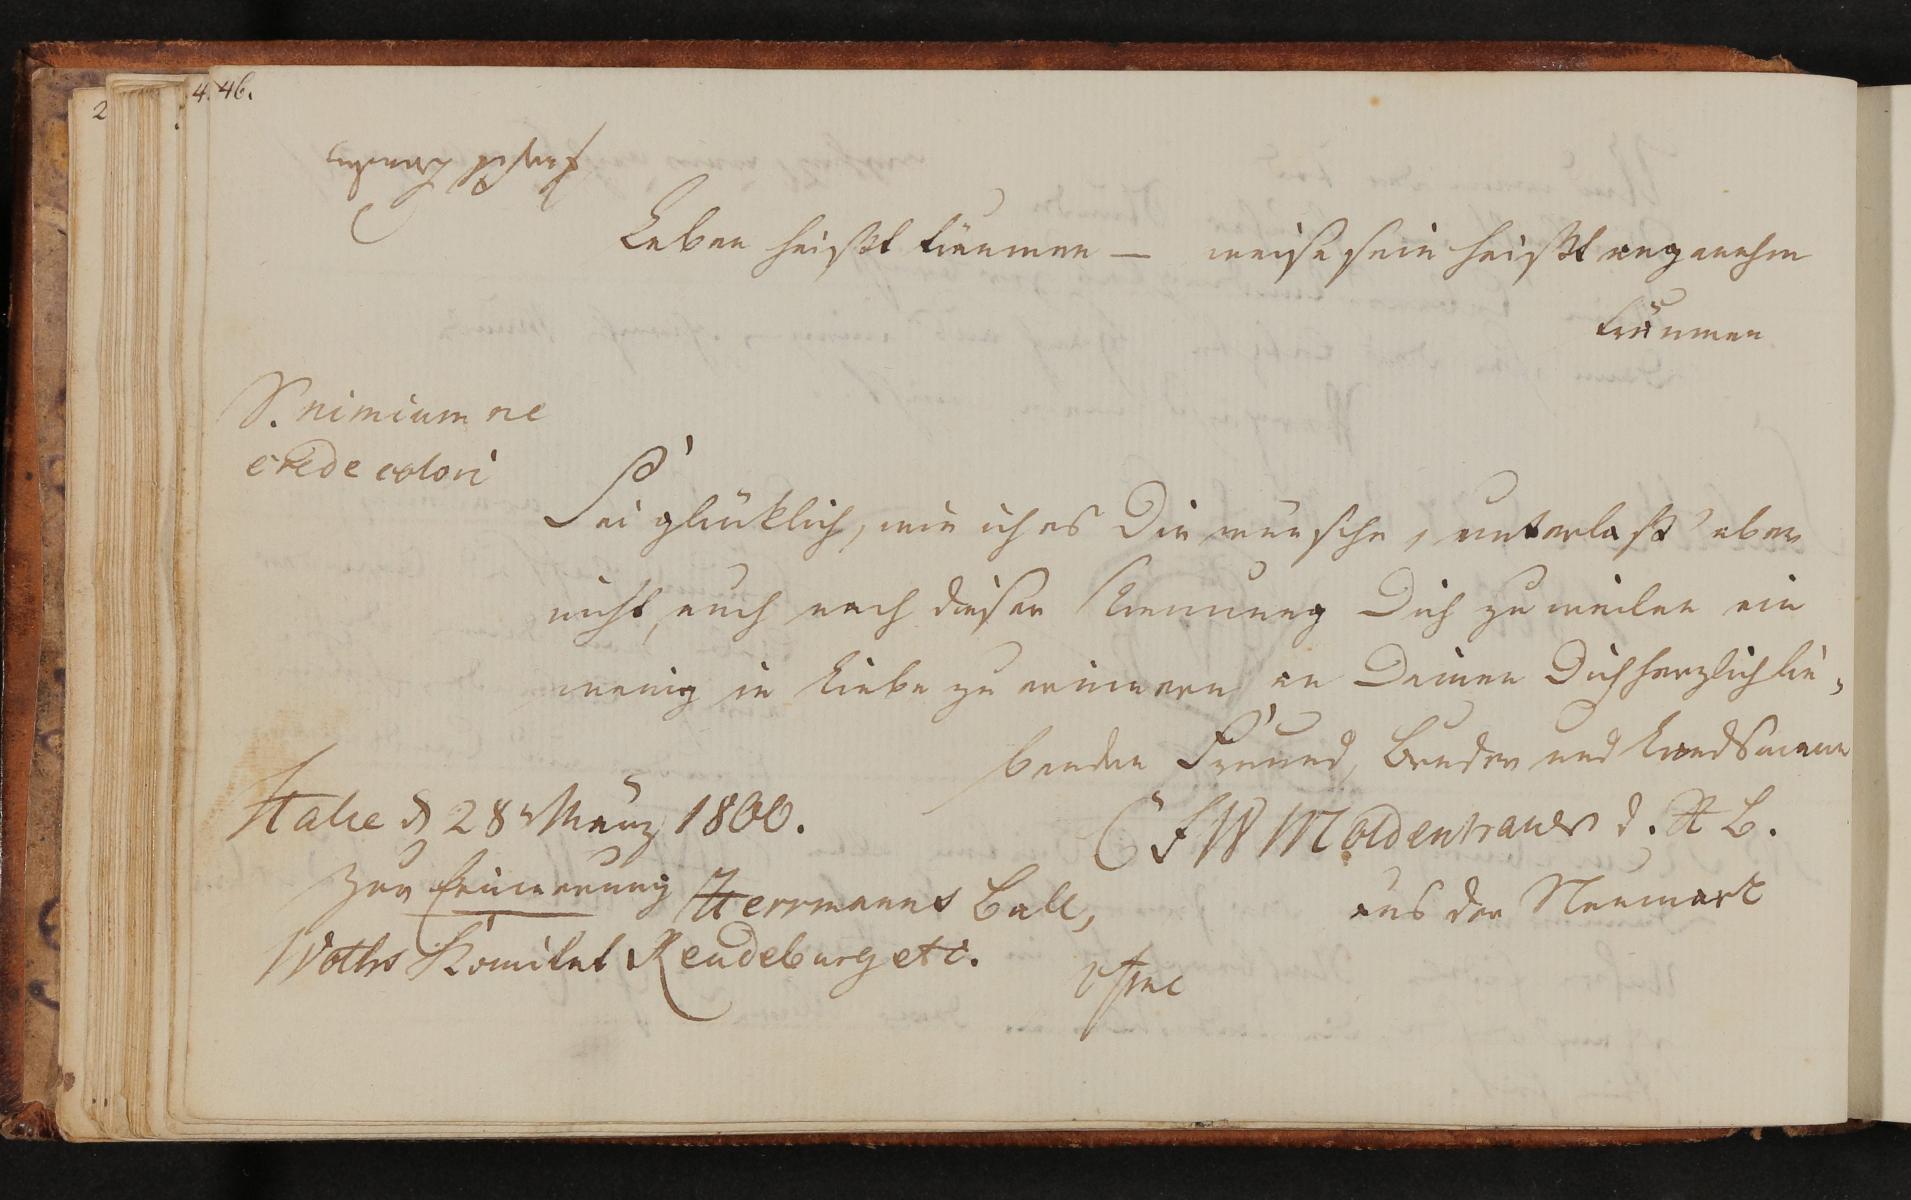 46.
Leben heißt träumen — weise sein heißt angenehm
träumen
S. nimium ne
crede colori
Sei glücklich, wie ich es Dir wünsche, unterlaß aber
nicht, auch nach dieser Trennung Dich zuweilen ein
wenig in Liebe zu erinnern an Deinen Dich herzlich lie-
benden Freund, Bruder und Landsmann
Halle d 28 März 1800.
C F W Moldenhauer d. R B.
Zur Erinnerung Herrmanns Ball,
aus der Neumark
Woths Komitat Rendeburg etc.